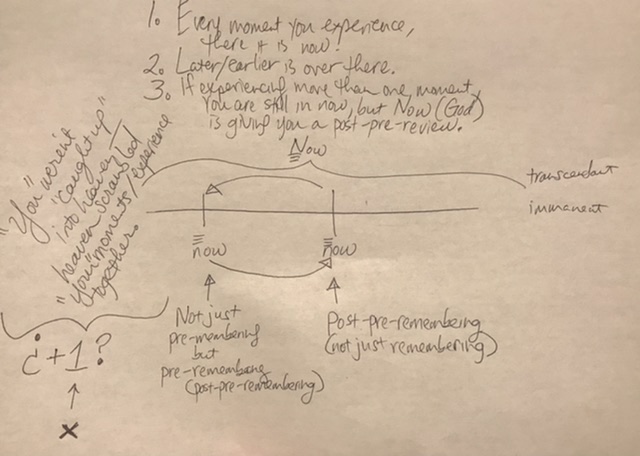 1. Every moment you experience,
there it is now!
2. Later/earlier is over there.
3. If experiencing more than one moment,
you are still in now, but Now (God)
is giving you a post-pre-review.
"You weren't
"caught up"
into heaven
"heaven scrambled
your "moments/experience
together.
Now
transcendant
immanent
now
now
Not just
pre-membering
but
pre-remembering
(post-pre-remembering)
Post-pre-remembering
(not just remembering)
i+1?
x